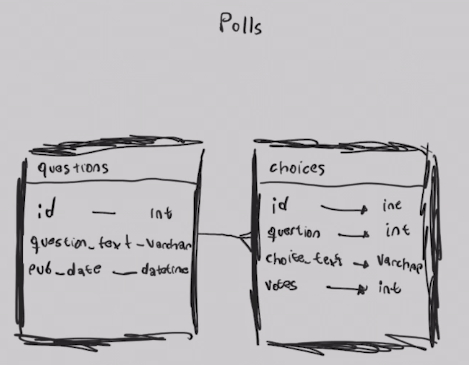 Polls
questions
id — int
question_text - varchar
pub_date — datetime
choices
id → int
question → int
choice_text → varchar
votes → int